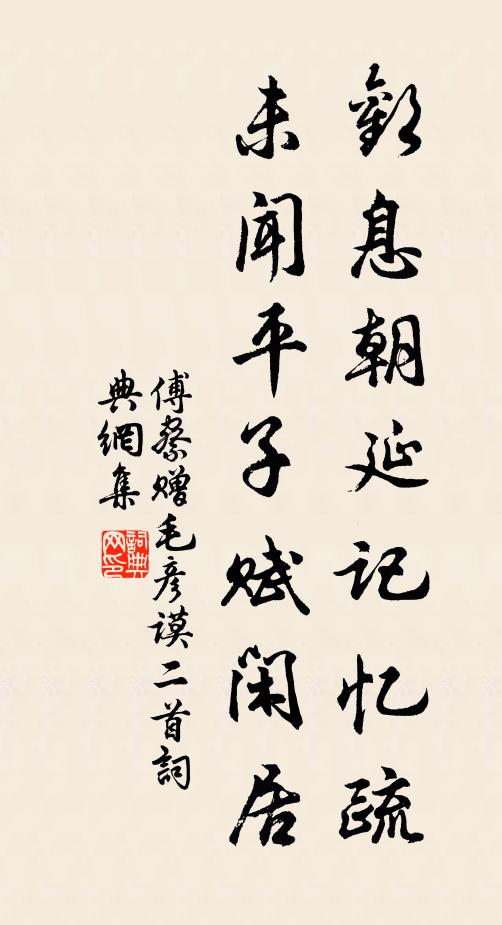 歎息朝延记忆疏
未闻平子赋闲居
傅察赠毛彦谟二首詞
典網集
詞典
网印